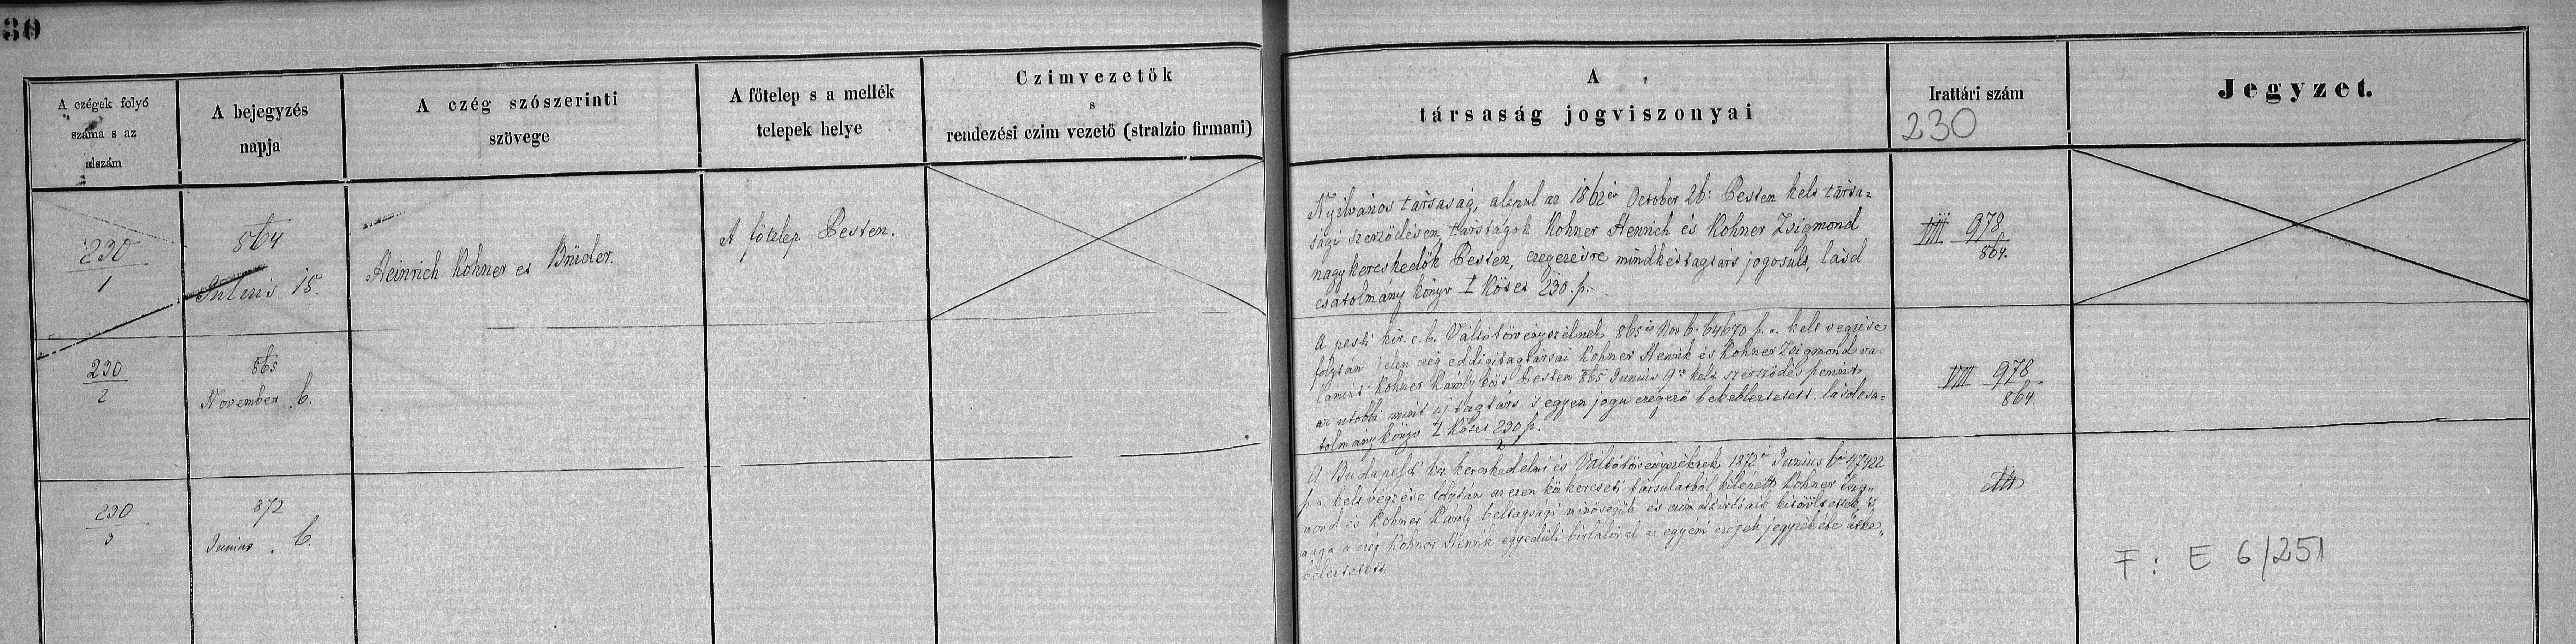 30
A czégek folyó
száma s az
alszám
A bejegyzés
napja
A czég szószerinti
szövege
A főtelep s a mellék
telepek helye
Czimvezetök
s
rendezési czim vezetö (stralzio firmani)
A
társaság jogviszonyai
Irattári szám
230
Jegyzet.
230
1
864
Julius 18.
Heinrich Kohner et Brüder.
A főtelep Pesten.
Nyilvános társaság, alapul az 1862 év October 26: Pesten kelt társa=
sági szerződésen, társtagok Kohner Henrich és Kohner Zsigmond
nagykereskedők Pesten, czegezésre mindkét tagtárs jogosult, lásd
csatolmány könyv I Kötet 230. p.
VIII 978
864.
230
2
865
November 6.
A pesti kir. e. b. Váltótörvényszéknek 865 év Nov 6. 64670 p. a. kelt végzése
folytán jelen czég eddigi tagtársai Kohner Henrik és Kohner Zsigmond va=
lamint Kohner Károly közt Pesten 865 Junius 9én kelt szerződés szerint
az utóbbi mint uj tagtárs s egyen jogu czégező bekebleztetett. lásd csa=
tolmány könyv I Kötet 230 p.
2
VIII 978
864.
230
3
872
Junius 6.
A Budapesti kir. kereskedelmi és Váltótörvényszéknek 1872 Junius 6án 47422
p. a. kelt végzése folytán az ezen köz kereseti társulatból kilépett Kohner Zsig„
mond és Kohner Károly beltagsági minőségük és czim aláírásaik kitöröltettek, s
maga a czég Kohner Henrik egyedüli birtokossal az egyéni czégek jegyzékébe átke„
beleztetett
F: E 6/251